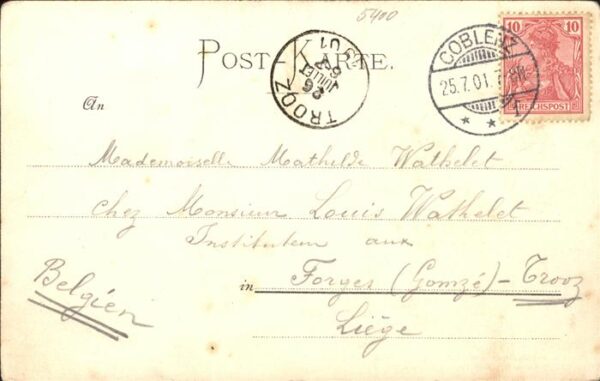 5400
POST-KARTE.
COBLENZ
25.7.01.
1
* *
10 10
REICHSPOST
TROOZ
26
JUILLET
01
An
Mademoiselle Mathilde Wathelet
chez Monsieur Louis Wathelet
Instituteur aux
in Forges (Gomzé)-Trooz
Liège
Belgien